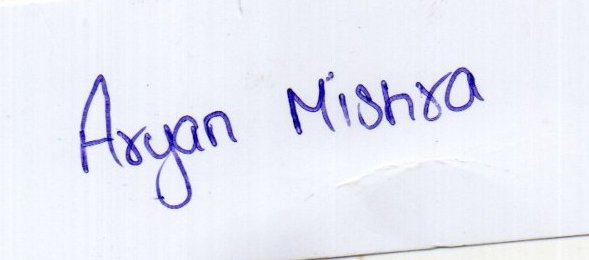 Aryan Mishra